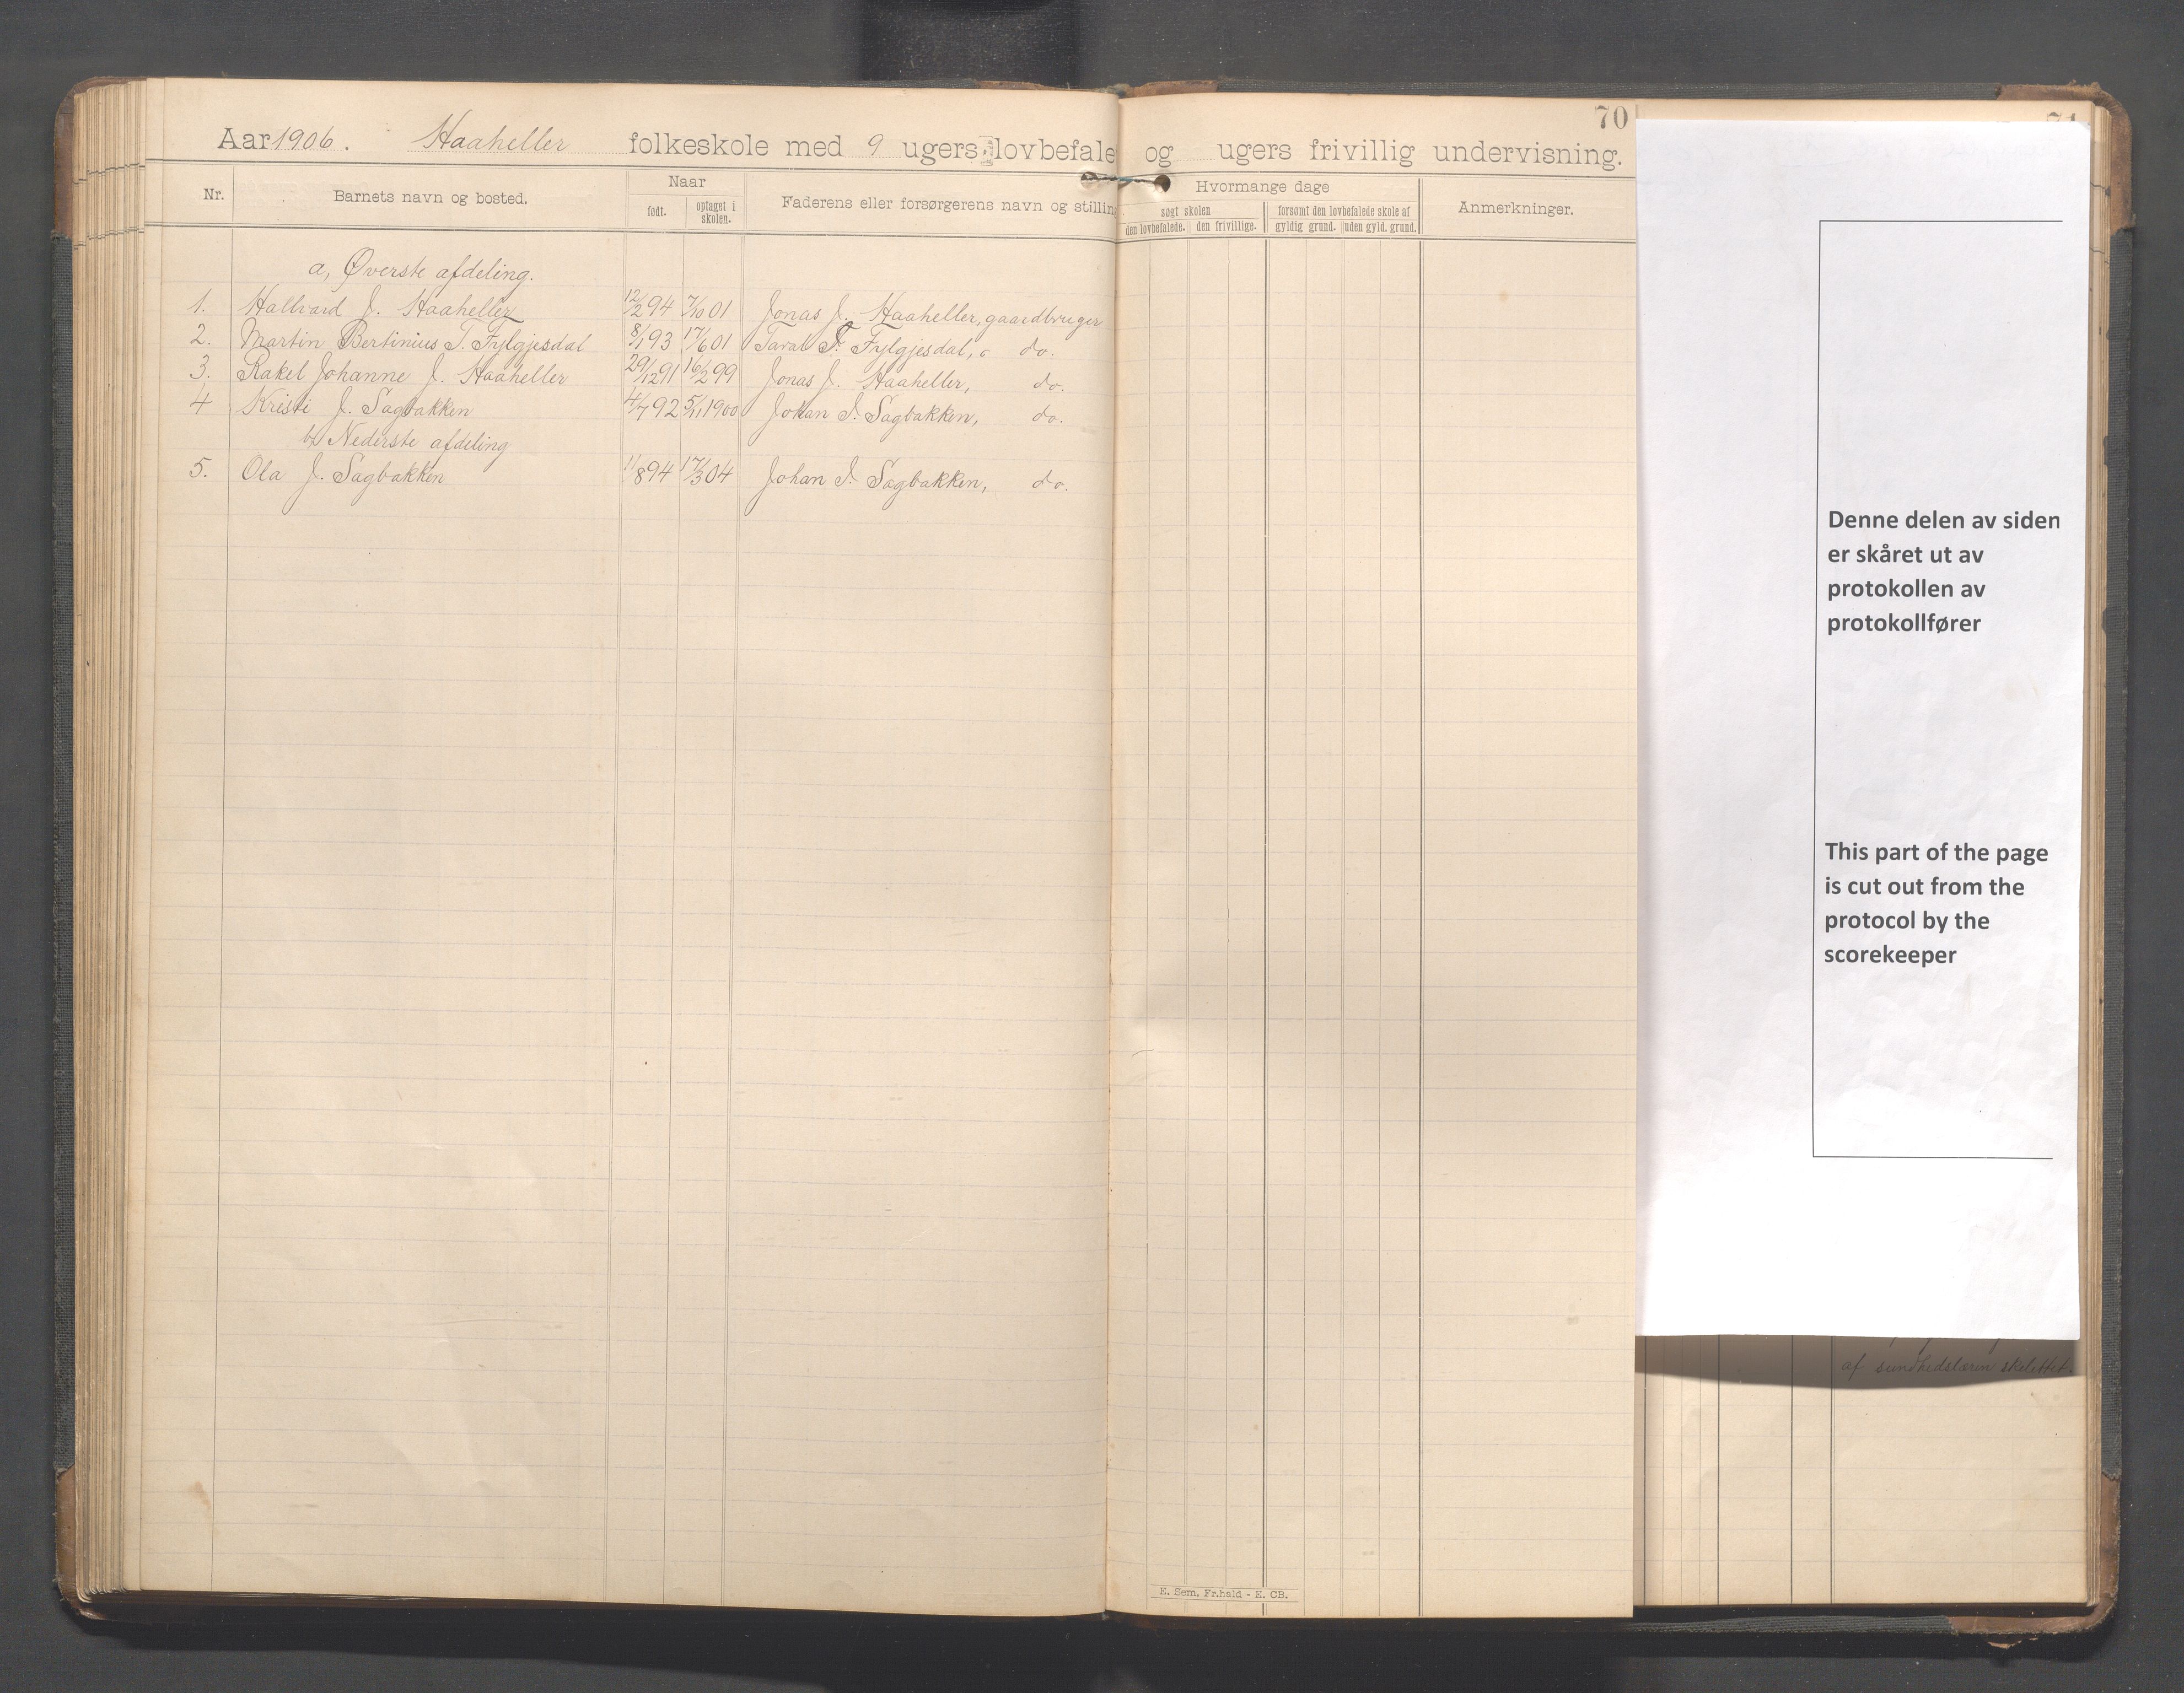 70
Aar 1906. Haaheller folkeskole med 9 ugers lovbefale og ugers frivillig undervisning.
Nr. Barnets navn og bosted. Naar Faderens eller forsørgerens navn og stilling Hvormange dage Anmerkninger.
født. optaget i skolen. søgt skolen forsømt den lovbefalede skole af
den lovbefalede. den frivillige. gyldig grund. uden gyld. grund.
a, Øverste afdeling.
1. Hallvard J. Haaheller 12/2 94 7/10 01 Jonas J. Haaheller, gaardbruger
2. Martin Bertinius T. Fylgjesdal 8/1 93 17/6 01 Taral T. Fylgjesdal, do.
3. Rakel Johanne J. Haaheller 29/12 91 16/2 99 Jonas J. Haaheller, do.
4 Kristi J. Sagbakken 4/7 92 5/11 1900 Johan I. Sagbakken, do.
b, Nederste afdeling
5. Ola J. Sagbakken 11/8 94 17/3 04 Johan I. Sagbakken, do.
E. Sem, Fr.hald - E. CB.
Denne delen av siden
er skåret ut av
protokollen av
protokollfører
This part of the page
is cut out from the
protocol by the
scorekeeper
af sundhedslæren skelettet